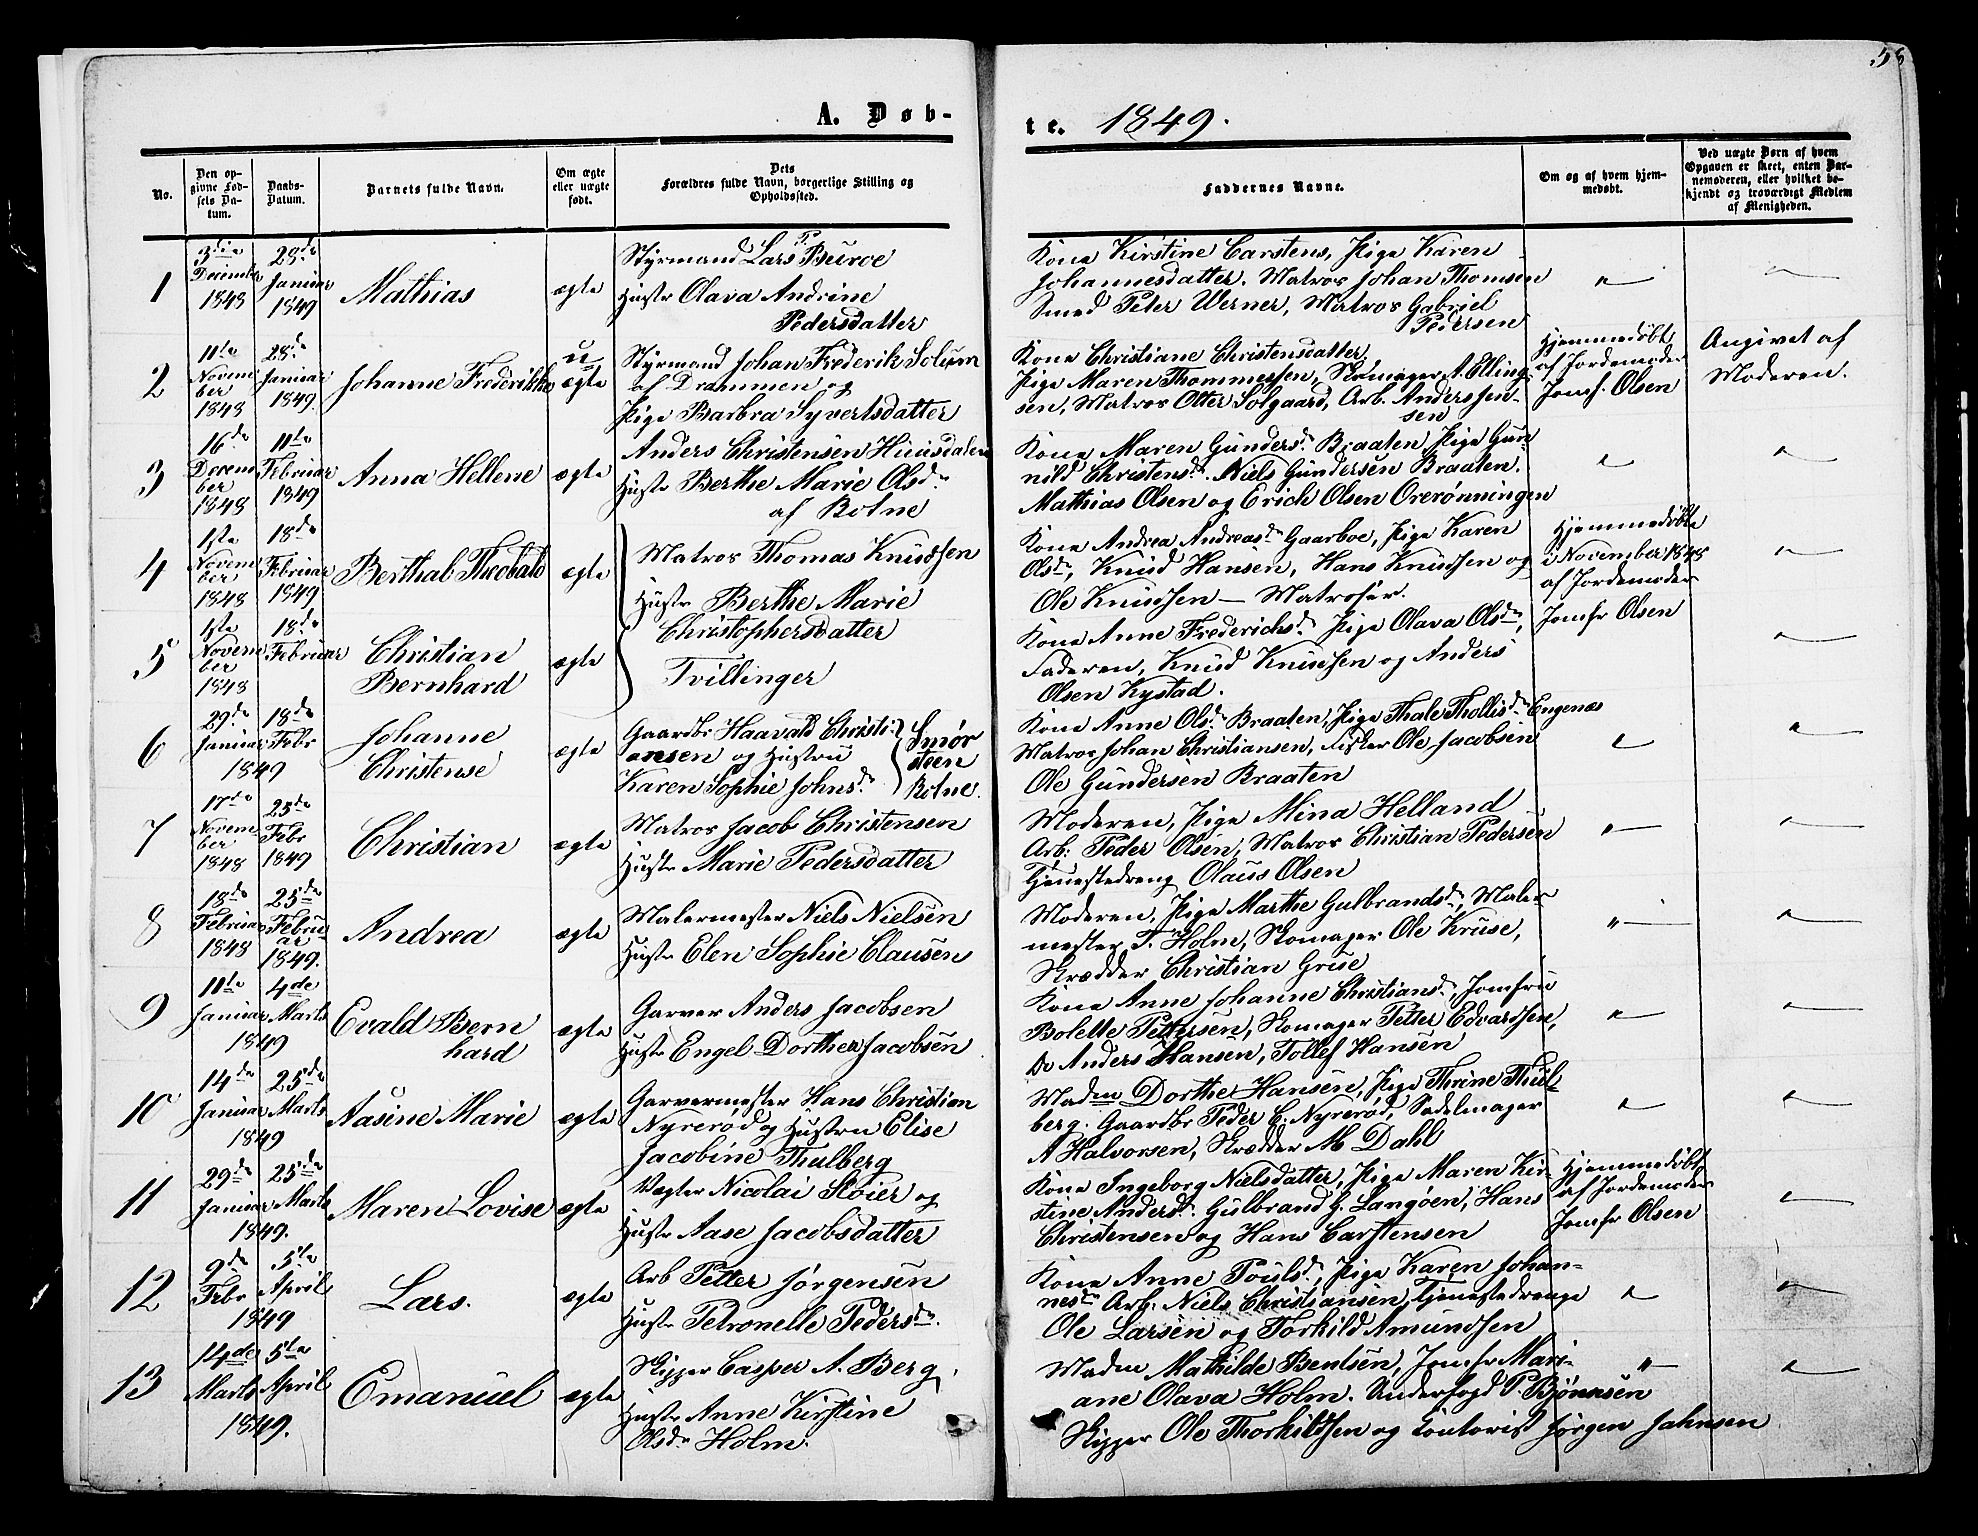 58
A. Døb-
te. 1849.
No.
Den opgivne Fødsels Datum.
Daabs-Datum.
Barnets fulde Navn.
Om ægte eller uægte født.
Dets Forældres fulde Navn, borgerlige Stilling og Opholdssted.
Faddernes Navne.
Om og af hvem hjemmedøbt.
Ved uægte Børn af hvem Opgaven er skeet, enten Barnemoderen, eller hvilket bekjendt og troværdigt Medlem af Menigheden.
1
3die December 1848
28de Januar 1849
Mathias
ægte
Styrmand Lars P. Buroe
Hustr Olava Andrine
Pedersdatter
Kone Kirstine Carstens, Pige Karen
Johannesdatter. Matros Johan Thomsen
Smed Peter Werner, Matros Gabriel
Pedersen
2
11te November 1848
28de Januar 1849.
Johanne Frederikke
uægte
Styrmand Johan Frederik Solum
af Drammen og
Pige Barbra Syvertsdatter
Kone Christiane Christensdatter.
Pige Maren Thommesen, Skomager A. Elling-
sen, Matros Otter Solgaard, Arb. Anders Jen-
sen
Hjemmedøbt
af Jordemoder
Jomf. Olsen
Angivet af
Moderen.
3
16de December 1848
11te Februar 1849
Anna Hellene
ægte
Anders Christensen Huusdalen
Hustr Berthe Marie Olsdr
af Botne
Kone Maren Gundersdr Braaten, Pige Gun-
nild Christensdr. Niels Gundersen Braaten.
Mathias Olsen og Erich Olsen Orerønningen
4
1ste November 1848
18de Februar 1849
Berthal Theobald
ægte
Matros Thomas Knudsen
Hustr Berthe Marie
Kone Andrea Andreasdr Gaarboe, Pige Karen
Olsdr, Knud Hansen, Hans Knudsen og
Ole Knudsen — Matroser.
Hjemmedøbte
i November 1848
af Jordemoder
5
1ste November 1848
18de Februar
Christian
Bernhard
ægte
Christophersdatter
Tvillinger
Kone Anne Frederichsdr Pige Olava Olsdr,
Faderen, Knud Knudsen og Anders
Olsen Kystad.
Jomfr Olsen
6
29de Januar
18de Febr
1849
Johanne
Christense
ægte
Gaardbr Haavald Christi-
ansen og Hustru
Karen Sophie Johnsdr
Smør
steen
Botne.
Kone Anne Olsdr Braaten, Pige Thale Thollisdr Engenæs
Matros Johan Christiansen, Fisker Ole Jacobsen
Ole Gundersen Braaten
7
17de November 1848
25de Febr 1849
Christian
ægte
Matros Jacob Christensen
Hustr Marie Pedersdatter
Moderen, Pige Mina Helland
Arb: Peder Olsen, Matros Christian Pedersen
Tjenestedreng Olaus Olsen
8
18de Februar 1848
25de Februar 1849.
Andrea
ægte
Malermester Niels Nielsen
Hustr Elen Sophie Clausen
Moderen, Pige Marthe Gulbrandsdr, Maler
mester T. Holm, Skomager Ole Kruse,
Skrædder Christian Gruse
9
11te Januar
4de Marts
1849
Evald Bern
hard
ægte
Garver Anders Jacobsen
Hustr Engel Dorthea Jacobsen
Kone Anne Johanne Christiansdr, Jomfru
Bolette Pettersen, Skomager Petter Edvardsen,
Do Anders Hansen, Tollef Hansen
10
14de Januar
25de Marts
1849
Aasine Marie
ægte
Garvermester Hans Christian
Nyrerød og Hustru Elise
Jacobine Thulberg
Madm Dorthe Hansen, Pige Thrine Thul-
berg. Gaardbr Peder C. Nyrerød, Sadelmager
A Halvorsen, Skrædder M Dahl
11
29de Januar
25de Marts
1849.
Maren Lovise
ægte
Vægter Nicolai Høier og
Hustr Aase Jacobsdatter
Kone Ingeborg Nielsdatter, Pige Maren Kir-
stine Andersdr. Gulbrand G. Langøen, Hans
Christensen og Hans Carstensen
Hjemmedøbt
af Jordemoder
Jomfr Olsen
12
9de Febr
5te April
1849
Lars.
ægte
Arb Petter Jørgensen
Hustr Petronelle Pedersdr.
Kone Anne Poulsdr, Pige Karen Johan-
nesdr Arb. Niels Christiansen, Tjenestedrenge
Ole Larsen og Torkild Amundsen
13
14de Marts
5te April
1849.
Emanuel
ægte
Skipper Casper A. Berg,
Hustr Anne Kirstine
Olsdr Holm.
Madm Mathilde Bentsen, Jomfr Mari-
ane Olava Holm. Underfogd P. Bjønnsen
Skipper Ole Thorkildsen og Contorist Jørgen Jahnsen